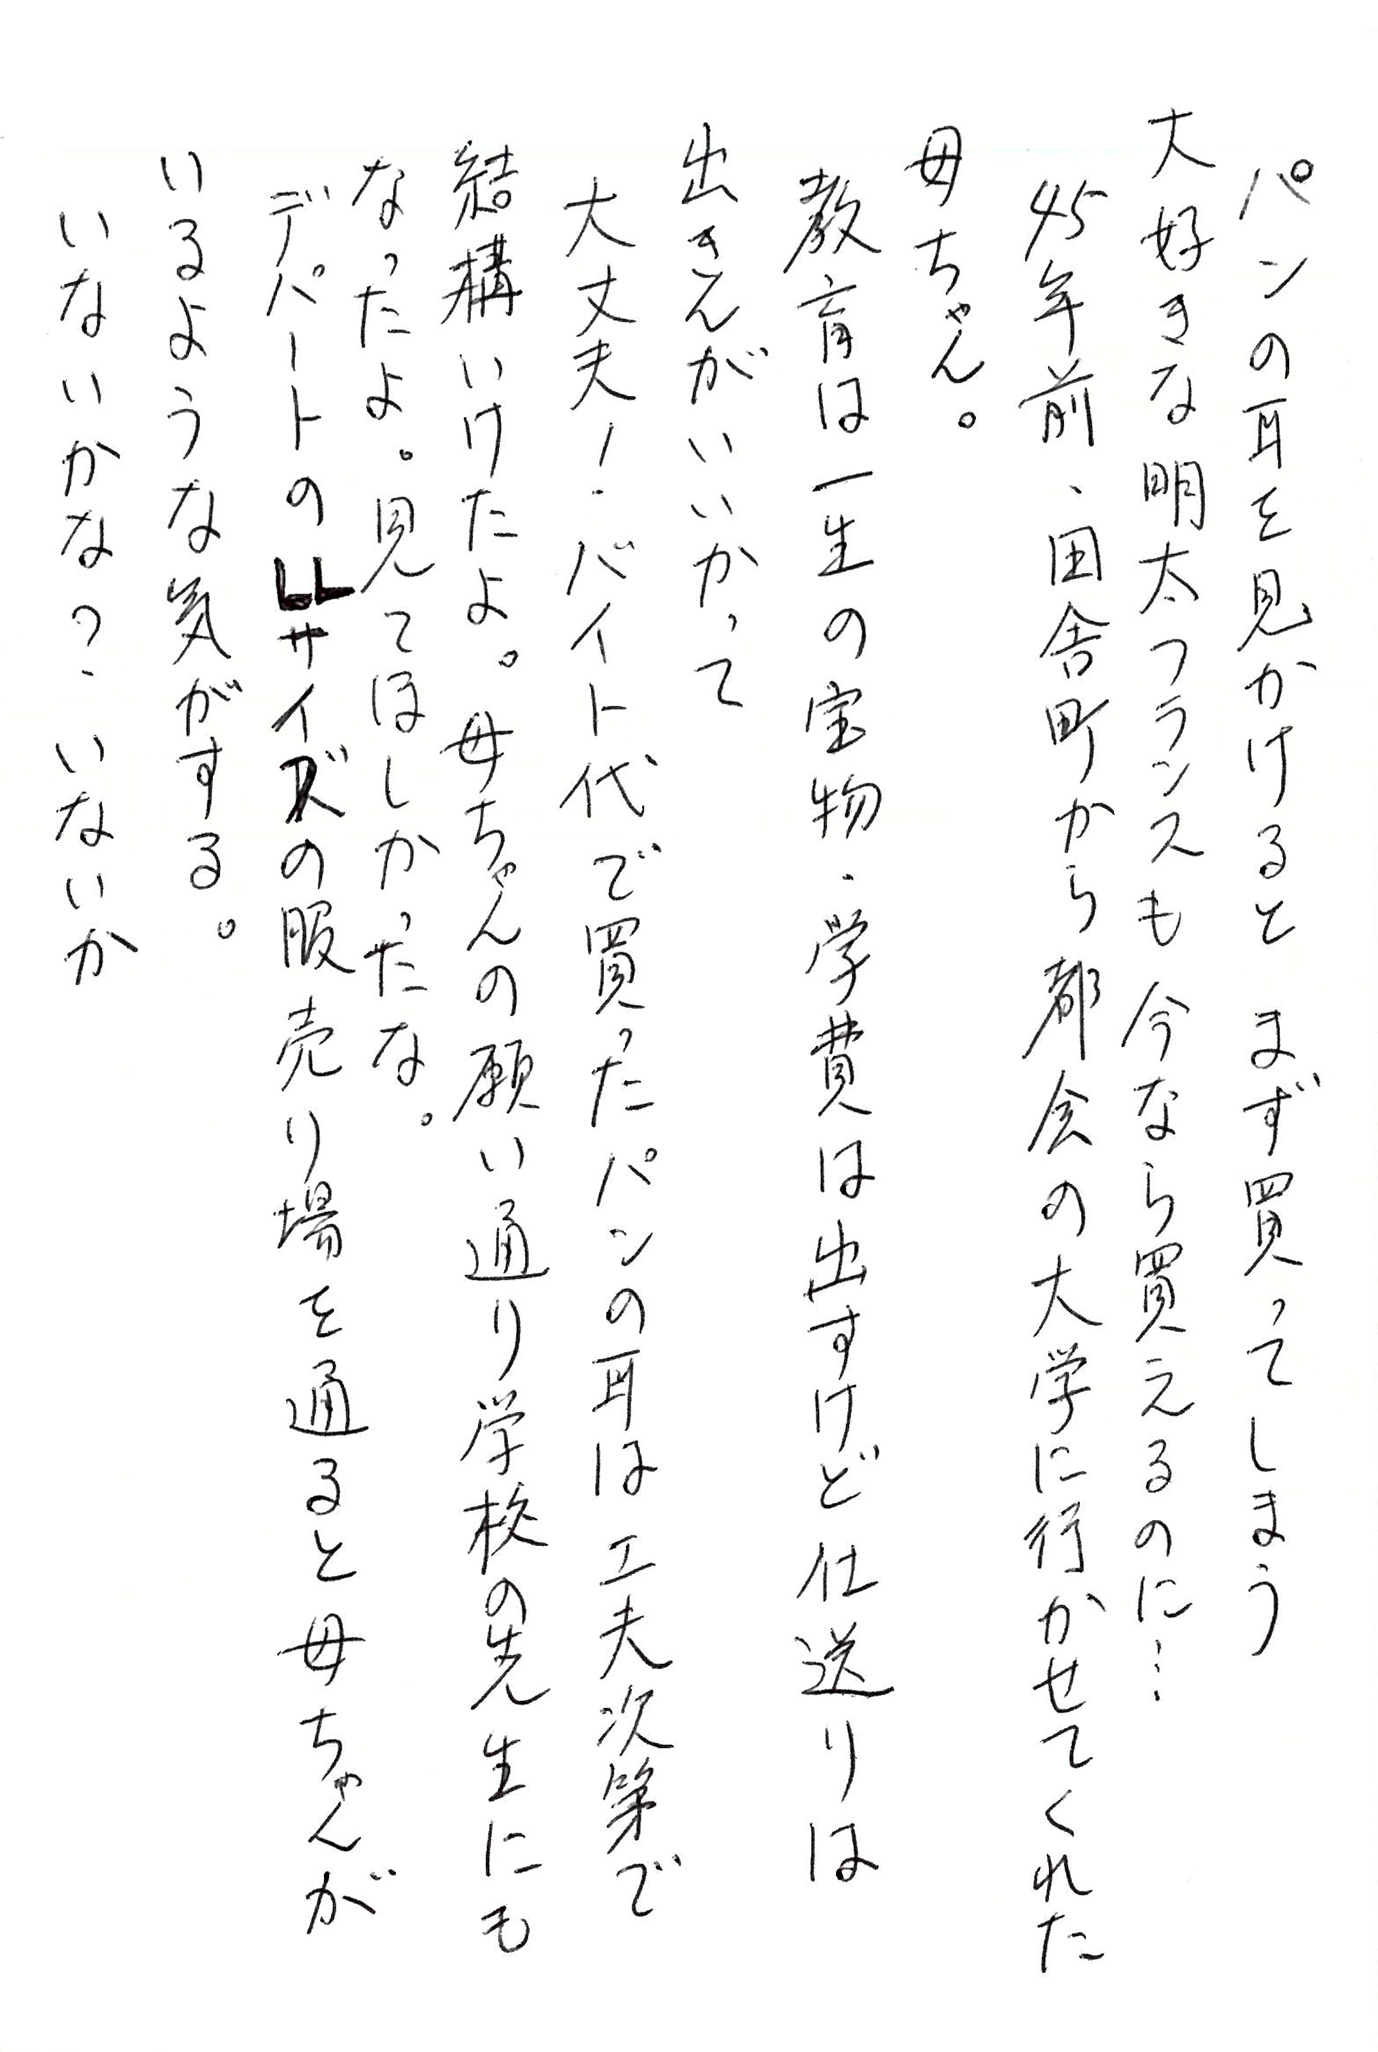 パンの耳を見かけると まず買ってしまう
大好きな明太フランスも今なら買えるのに…
45年前、田舎町から都会の大学に行かせてくれた
母ちゃん。
教育は一生の宝物、学費は出すけど仕送りは
出きんがいいかって
大丈夫！バイト代で買ったパンの耳は工夫次第で
結構いけたよ。母ちゃんの願い通り学校の先生にも
なったよ。見てほしかったな。
デパートのLLサイズの服売り場を通ると母ちゃんが
いるような気がする。
いないかな？いないか